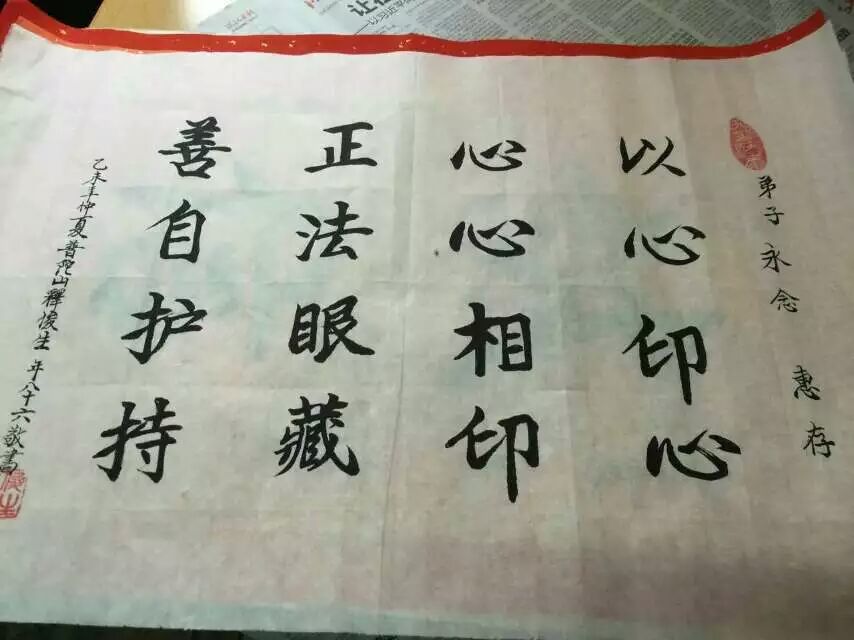 弟子永念 惠存
以心印心
心心相印
正法眼藏
善自护持
乙未年仲夏普陀山釋懷生 年八十六敬書